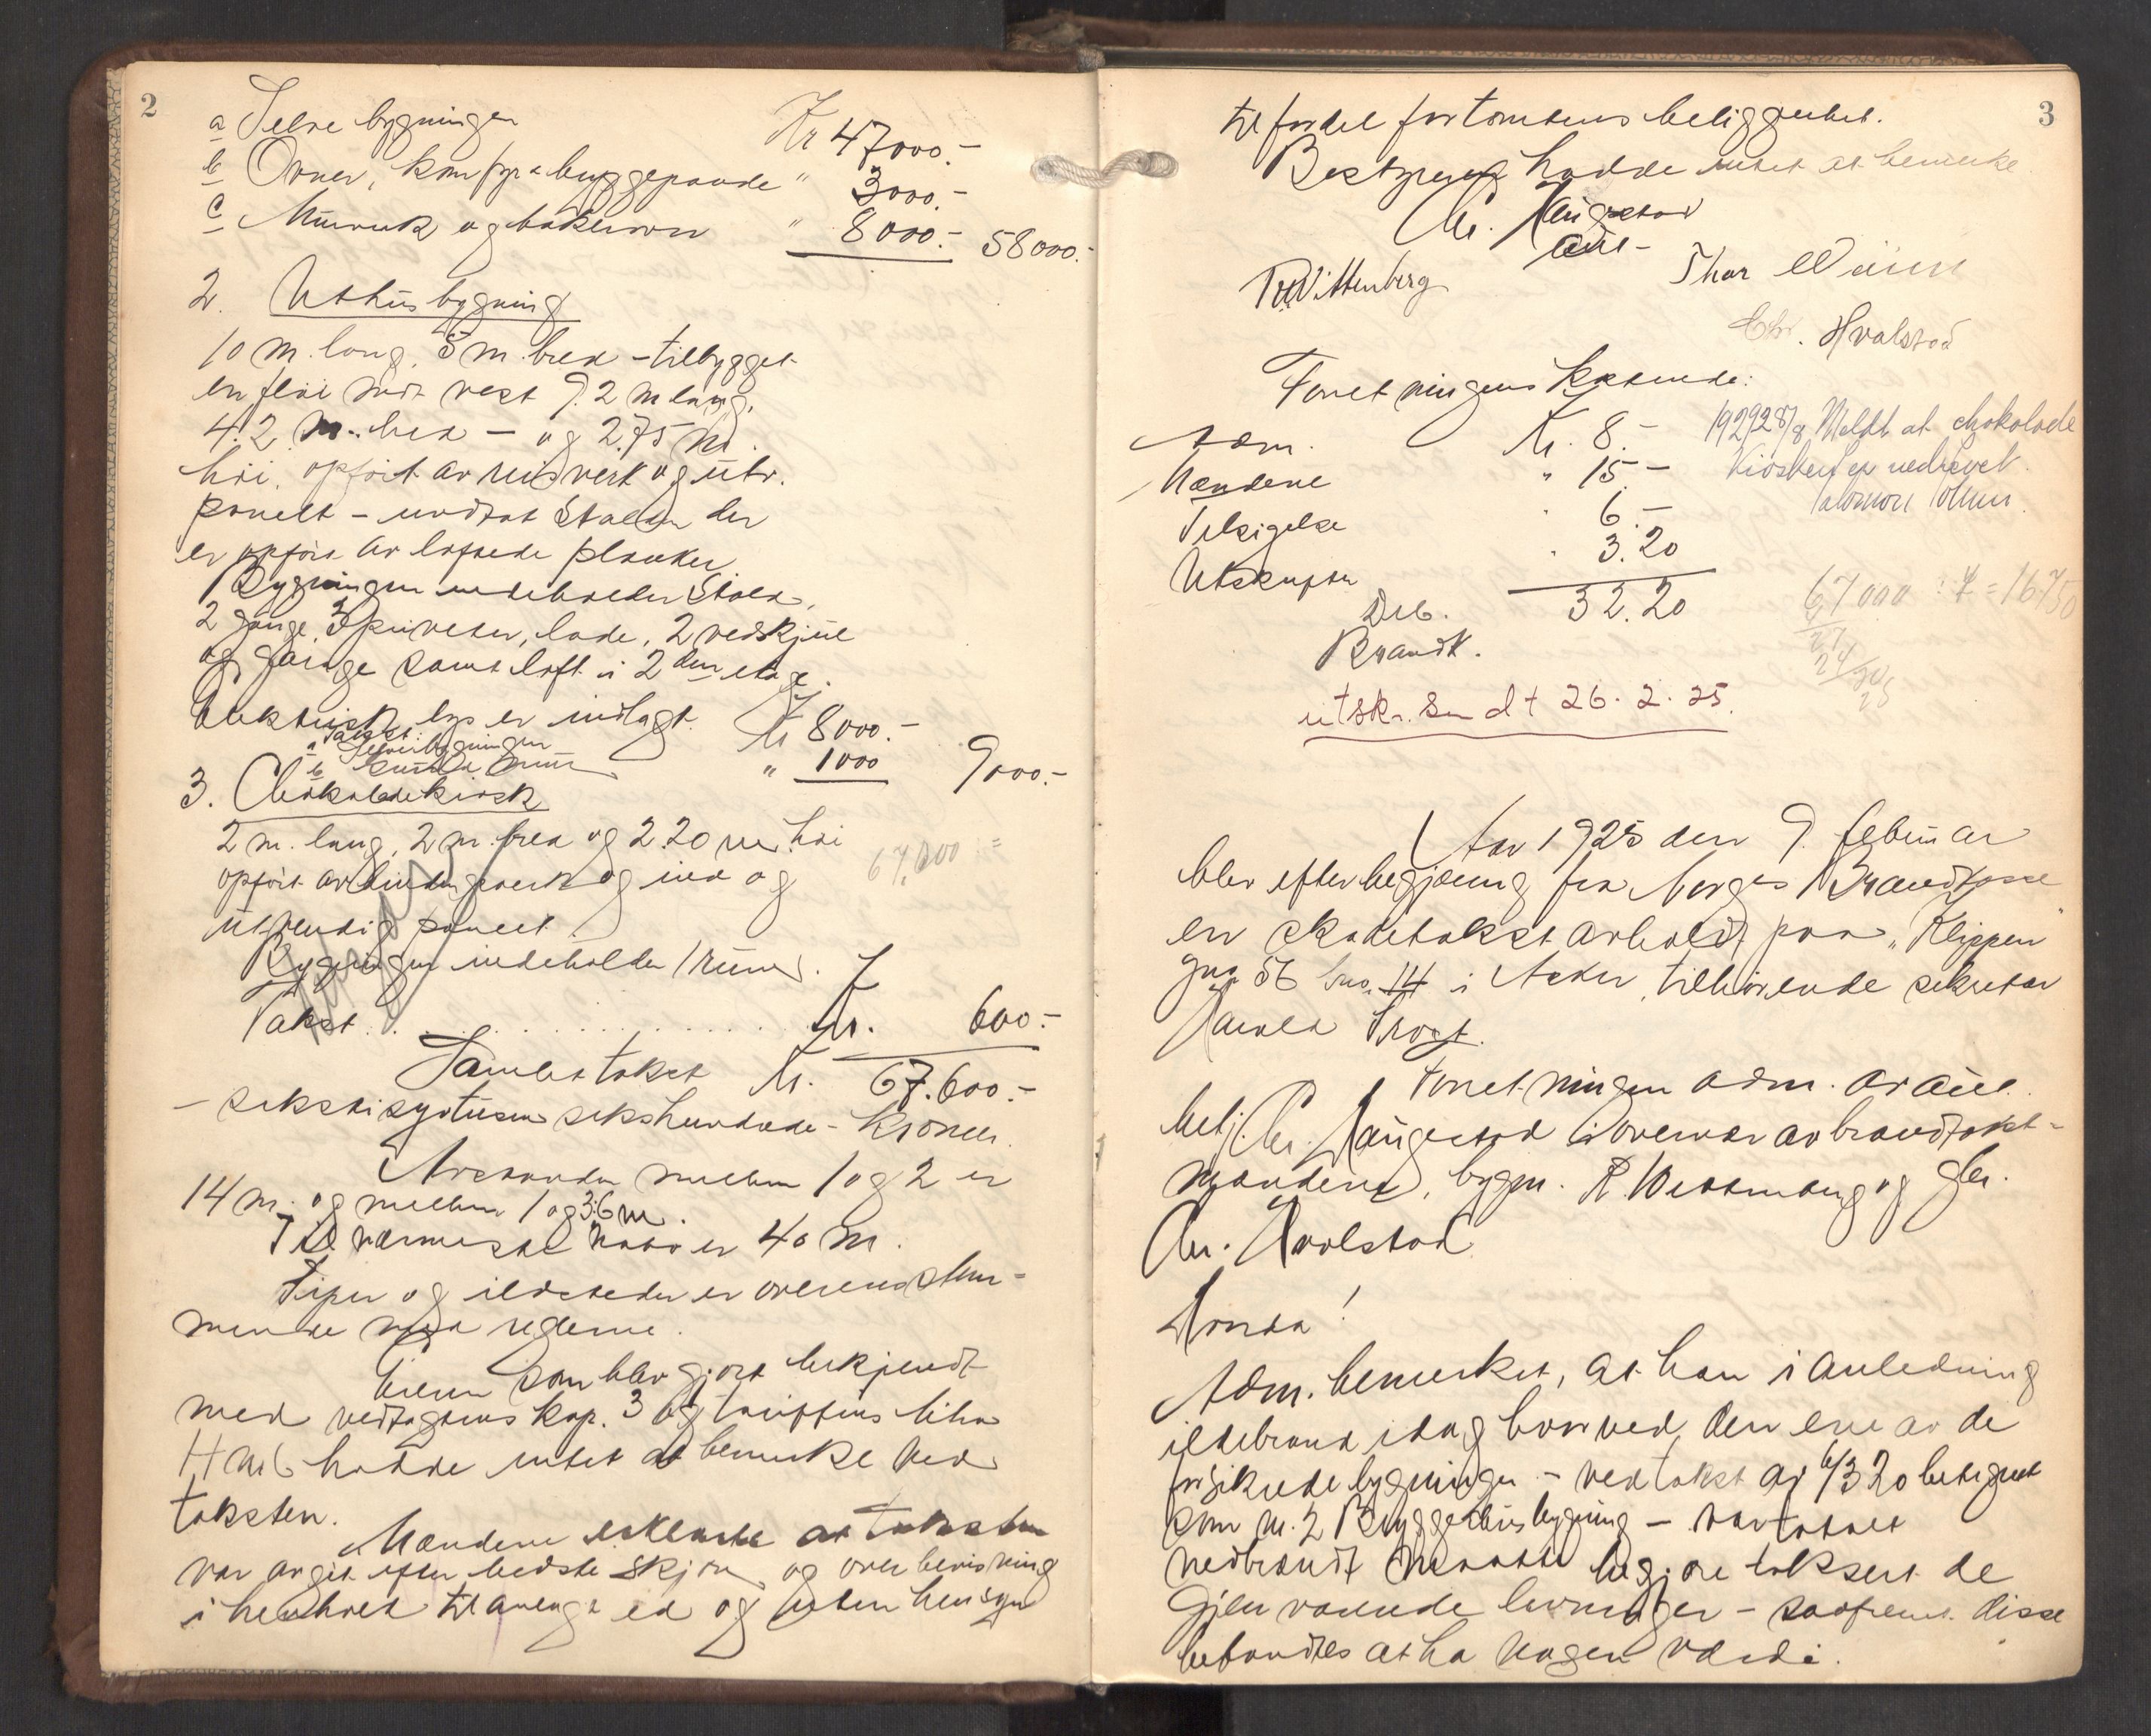 2
a Selve bygningen Kr 47000.-
b Ovner, komfyr & bryggepande " 3000.-
c Murverk og bakerovn " 8000.- 58000.-
2. Uthusbygning
10 m. lang, 5 m. bred - tilbygget
en fløi mot vest 9.2 m lang,
4.2 m. bred - og 2.75 m.
høi, opført av reisverk og utv.
panelt - undtat Stalden der
er opført av laftede planker.
Bygningen indeholder Stald,
2 gange, 3 priveter, lade, 2 vedskjul
og garage samt loft i 2den etage.
Elektrisk lys er indlagt.
Takst:
a Selve bygningen Kr 8000.-
b mur " 1000 9000.-
3. Chokoladekiosk
2 m. lang, 2 m. bred og 2.20 m. høi
opført av bindingsverk og ind og
utvendig panelt. 67.000 =
Bygningen indeholder 1 rum.
Takst . . . . . . . . . Kr. 600.-
Samlet takst Kr. 67.600.-
- sekstisyvtusen sekshundrede - kroner.
Avstanden mellem 1 og 2 er
14 m. og mellem 1 og 3: 6 m.
Til nærmeste nabo er 40 m.
Piper og ildsteder er overensstem-
mende med reglerne.
Eieren som blev gjort bekjendt
med vedtægtens kap. 3 og tariffens litra
H hadde intet at bemerke ved
taksten.
Mændene erklærte at taksten
var avgit efter bedste skjøn og overbevisning
i henhold til avlagt ed og uten hensyn
3
til fordel for tomtens beliggenhet.
Bestyreren hadde intet at bemerke.
Chr. Haugestad
aut-
R. Wittenberg Thor
Chr. Hvalstad
Forretningens kostende:
Adm. Kr. 8.-
Mændene " 15.-
Tilsigelse " 6.-
Utskriften " 3.20
32.20
Deb.
Brandk.
1929 28/8 Meldt at chokolade
kiosken er nedrevet.
67000 : 4 = 16750
27
24
30
28
utskr. sendt 26.2.25.
Aar 1925 den 9. februar
blev efter begjæring fra Norges Brandkasse
en skadetakst avholdt paa "Klippen"
gno 56 bno. 14 i Asker, tilhørende sekretær
Harald
Forretningen adm. av aut.
betj. Chr. Haugestad i nærvær av brandtakst-
mændene, bygm. R. Wittenberg og gbr.
Chr. Hvalstad
Hvorda!
Adm. bemerket, at han i anledning
ildebrand idag hvorved den ene av de
forsikrede bygninger - ved takst av 6/3 20 betegnet
som nr. 2 Bryggerhusbygning - var totalt
nedbrændt maatte begjære taksert de
gjenværende levninger - saafremt disse
befandtes at ha nogen værdi.